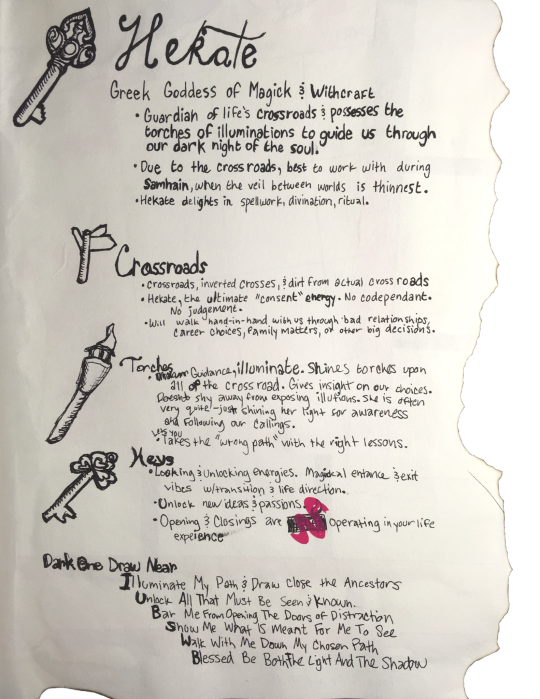 Hekate
Greek Goddess of Magick & Withcraft
• Guardian of life's crossroads & possesses the
torches of illuminations to guide us through
our dark night of the soul.
• Due to the crossroads, best to work with during
Samhain, when the veil between worlds is thinnest.
• Hekate delights in spellwork, divination, ritual.
Crossroads
• crossroads, inverted crosses, & dirt from actual cross roads
• Hekate, the ultimate "consent" energy. No codependant.
No judgement.
• Will walk hand-in-hand with us through bad relationships,
career choices, family matters, or other big decisions.
Torches
• Guidance, illuminate. Shines torches upon
all of the crossroad. Gives insight on our choices.
Doesnt shy away from exposing illutions. She is often
very quite - just shining her light for awareness
and following our callings.
• Takes the "wrong path" with the right lessons.
Keys
• Locking & Unlocking energies. Magickal entrance & exit
vibes w/transition & life direction.
• Unlock new ideas & passions.
• Opening & Closings are Operating in your life
expeience
Dark One Draw Near
Illuminate My Path & Draw Close the Ancestors
Unlock All That Must Be Seen & Known.
Bar Me From Opening The Doors of Distraction
Show Me What Is Meant For Me To See
Walk With Me Down My Chosen Path
Blessed Be Both The Light And The Shadow